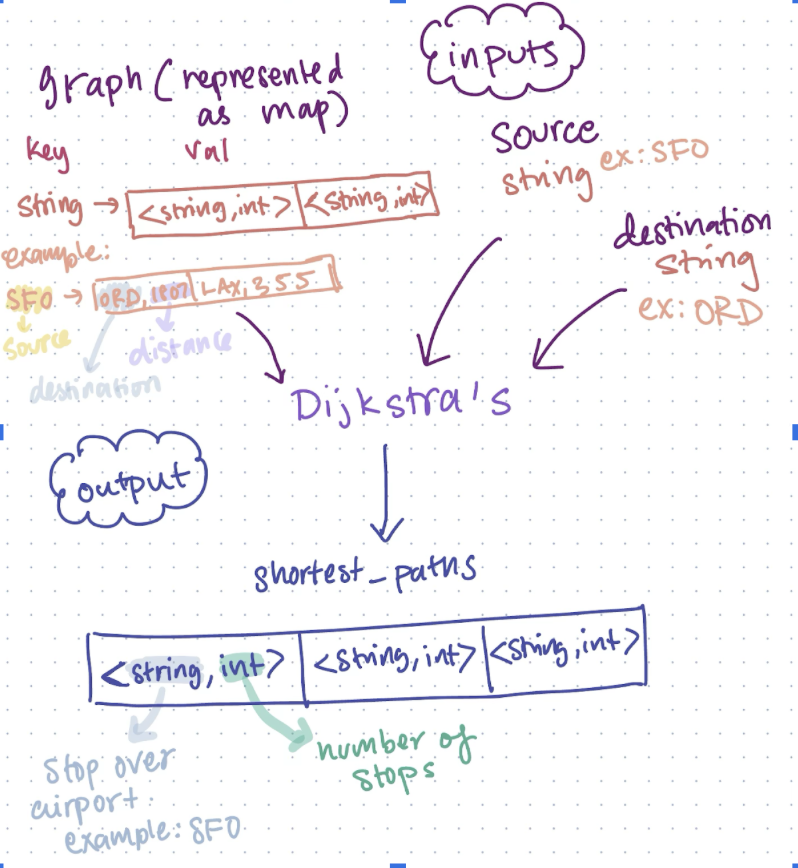 inputs
graph (represented
as map)
key val
string → <string,int> <string,int>
example:
SFO → ORD, 1807 LAX, 355
source
distance
destination
source
string ex: SFO
destination
string
ex: ORD
Dijkstra's
output
shortest_paths
<string, int> <string, int> <string, int>
stop over
airport.
example: SFO
number of
stops